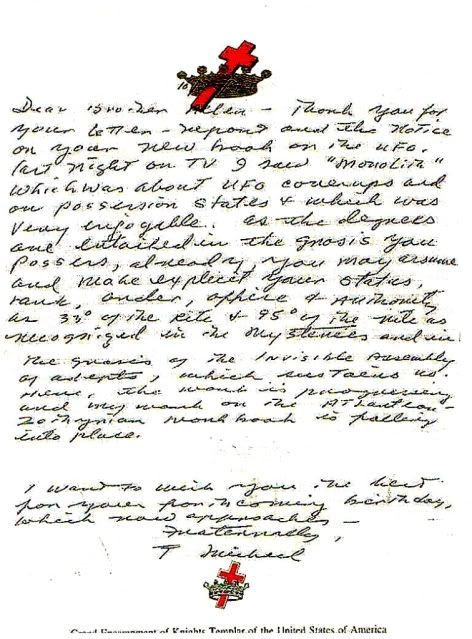 Dear Brother Allen — Thank you for
your letter - report and the notice
on your new book on the UFO.
Last night on TV I saw "Monolith"
which was about UFO coverups and
on possession states & which was
very enjoyable. As the degrees
are entailed in the gnosis you
possess, already you may assume
and make explicit your status,
rank, order, office & authority
as 33° of the Rite & 95° of the rite as
recognized in the Mysteries and in
the gnosis of the Invisible Assembly
of adepts, which sustains us.
Here, the work is progressing
and my work on the Atlantean-
Zothyrian workbook is falling
into place.
I want to wish you the best
for your forthcoming birthday,
which now approaches —
Fraternally,
Michael
Grand Encampment of Knights Templar of the United States of America